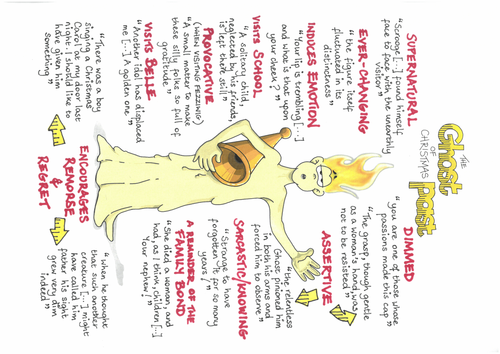 THE
Ghost
OF
CHRISTMAS
Past
SUPERNATURAL
"Scrooge [...] found himself
face to face with the unearthly
visitor"
EVER-CHANGING
"the figure itself
fluctuated in its
distinctness"
INDUCES EMOTION
"Your lip is trembling [...]
and what is that upon
your cheek?"
VISITS SCHOOL
"A solitary child,
neglected by his friends,
is left there still"
PROVOCATIVE
(WHEN VISITING FEZZIWIG)
"A small matter to make
these silly folks so full of
gratitude"
VISITS BELLE
"Another idol has displaced
me [...] A golden one"
"There was a boy
singing a Christmas
Carol at my door last
night: I should like to
have given him
something"
DIMMED
"you are one of those whose
passions made this cap"
"The grasp, though gentle
as a woman's hand, was
not to be resisted"
ASSERTIVE
"the relentless
Ghost pinioned him
in both his arms and
forced him to observe"
SARCASTIC/KNOWING
"Strange to have
forgotten it for so many
years!"
A REMINDER OF THE
FAMILY BOND
"She died a woman, and
had, as I think, children [...]
Your nephew!"
ENCOURAGES
REMORSE &
REGRET
"when he thought
that such another
creature [...] might
have called him
father his sight
grew very dim
indeed"